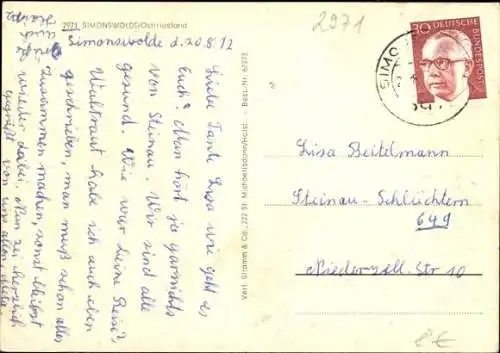 2971 SIMONSWOLDE/Ostfriesland
Simonswolde d. 20.8.72
Liebe Tante Lisa wie geht es
Euch? Man hört ja garnichts
von Steinau. Wir sind alle
gesund. Wie war Deine Reise?
Waltraut habe ich auch eben
geschrieben, man muß schon alles
zusammen machen, sonst bleibst
wieder dabei. Nun sei herzlich
gegrüßt von uns allen
Verl. Stramm & Co., 222 St. Michaelisdonn/Holst. - Best.-Nr. 67273
2971
30 DEUTSCHE BUNDESPOST
SIMO
Lisa Beitelmann
Steinau-Schlüchtern
649
Niederzell. Str 10
8€